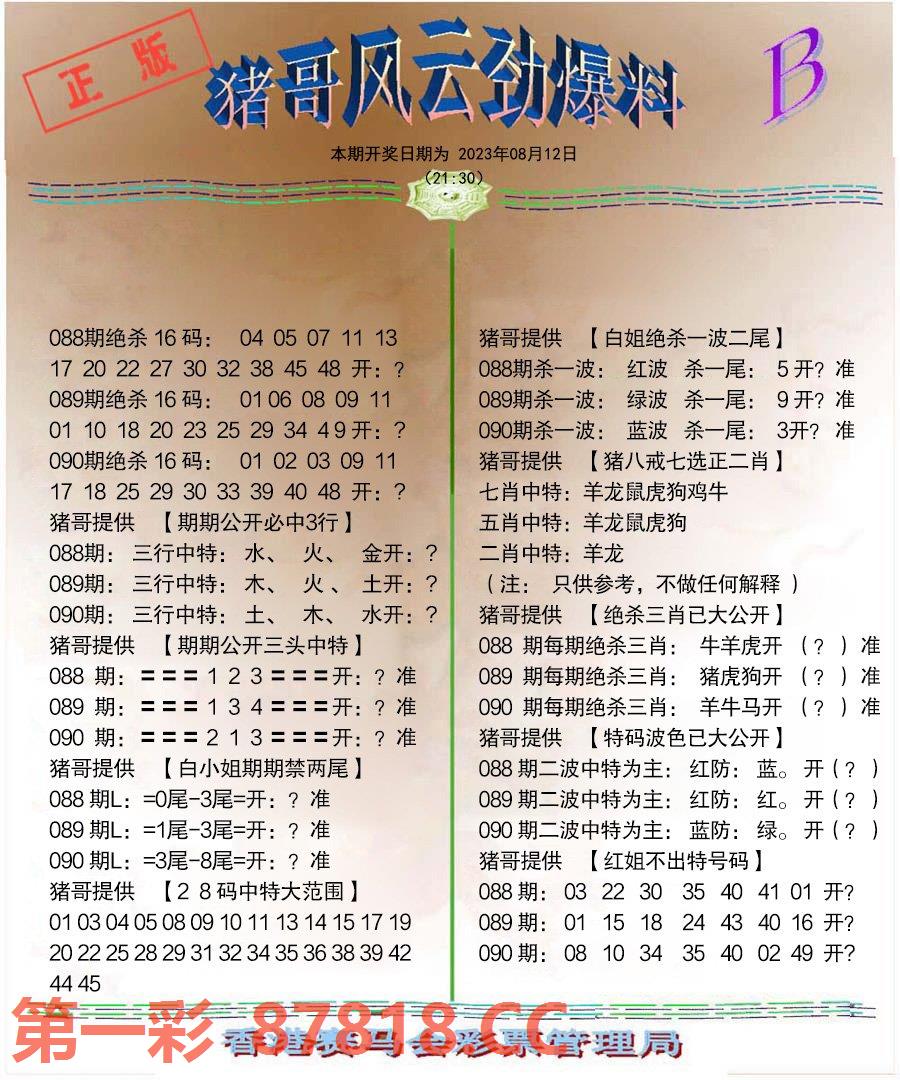 正版
猪哥风云劲爆料
B
本期开奖日期为 2023年08月12日
(21:30)
088期绝杀 16 码： 04 05 07 11 13
17 20 22 27 30 32 38 45 48 开：？
089期绝杀 16 码： 01 06 08 09 11
01 10 18 20 23 25 29 34 4 9 开：？
090期绝杀 16 码： 01 02 03 09 11
17 18 25 29 30 33 39 40 48 开：？
猪哥提供 【期期公开必中3行】
088期： 三行中特： 水、 火、 金开：？
089期： 三行中特： 木、 火、土开：？
090期： 三行中特： 土、 木、 水开：？
猪哥提供 【期期公开三头中特】
088 期：===１２３===开：？准
089 期：===１３４===开：？准
090 期：===２１３===开：？准
猪哥提供 【白小姐期期禁两尾】
088 期L：=0尾-3尾=开：？准
089 期L：=1尾-3尾=开：？准
090 期L：=3尾-8尾=开：？准
猪哥提供 【２８码中特大范围】
01 03 04 05 08 09 10 11 13 14 15 17 19
20 22 25 28 29 31 32 34 35 36 38 39 42
44 45
猪哥提供 【白姐绝杀一波二尾】
088期杀一波： 红波 杀一尾： 5 开？准
089期杀一波： 绿波 杀一尾： 9 开？准
090期杀一波： 蓝波 杀一尾： 3开？ 准
猪哥提供 【猪八戒七选正二肖】
七肖中特：羊龙鼠虎狗鸡牛
五肖中特：羊龙鼠虎狗
二肖中特：羊龙
（注： 只供参考，不做任何解释 ）
猪哥提供 【绝杀三肖已大公开】
088 期每期绝杀三肖： 牛羊虎开 （？）准
089 期每期绝杀三肖： 猪虎狗开 （？）准
090 期每期绝杀三肖： 羊牛马开 （？）准
猪哥提供 【特码波色已大公开】
088 期二波中特为主：红防：蓝。开（？）
089 期二波中特为主：红防：红。开（？）
090 期二波中特为主：蓝防：绿。开（？）
猪哥提供 【红姐不出特号码】
088 期： 03 22 30 35 40 41 01 开？
089 期： 01 15 18 24 43 40 16 开？
090 期： 08 10 34 35 40 02 49 开？
第一彩 87818.CC
香港赛马会彩票管理局